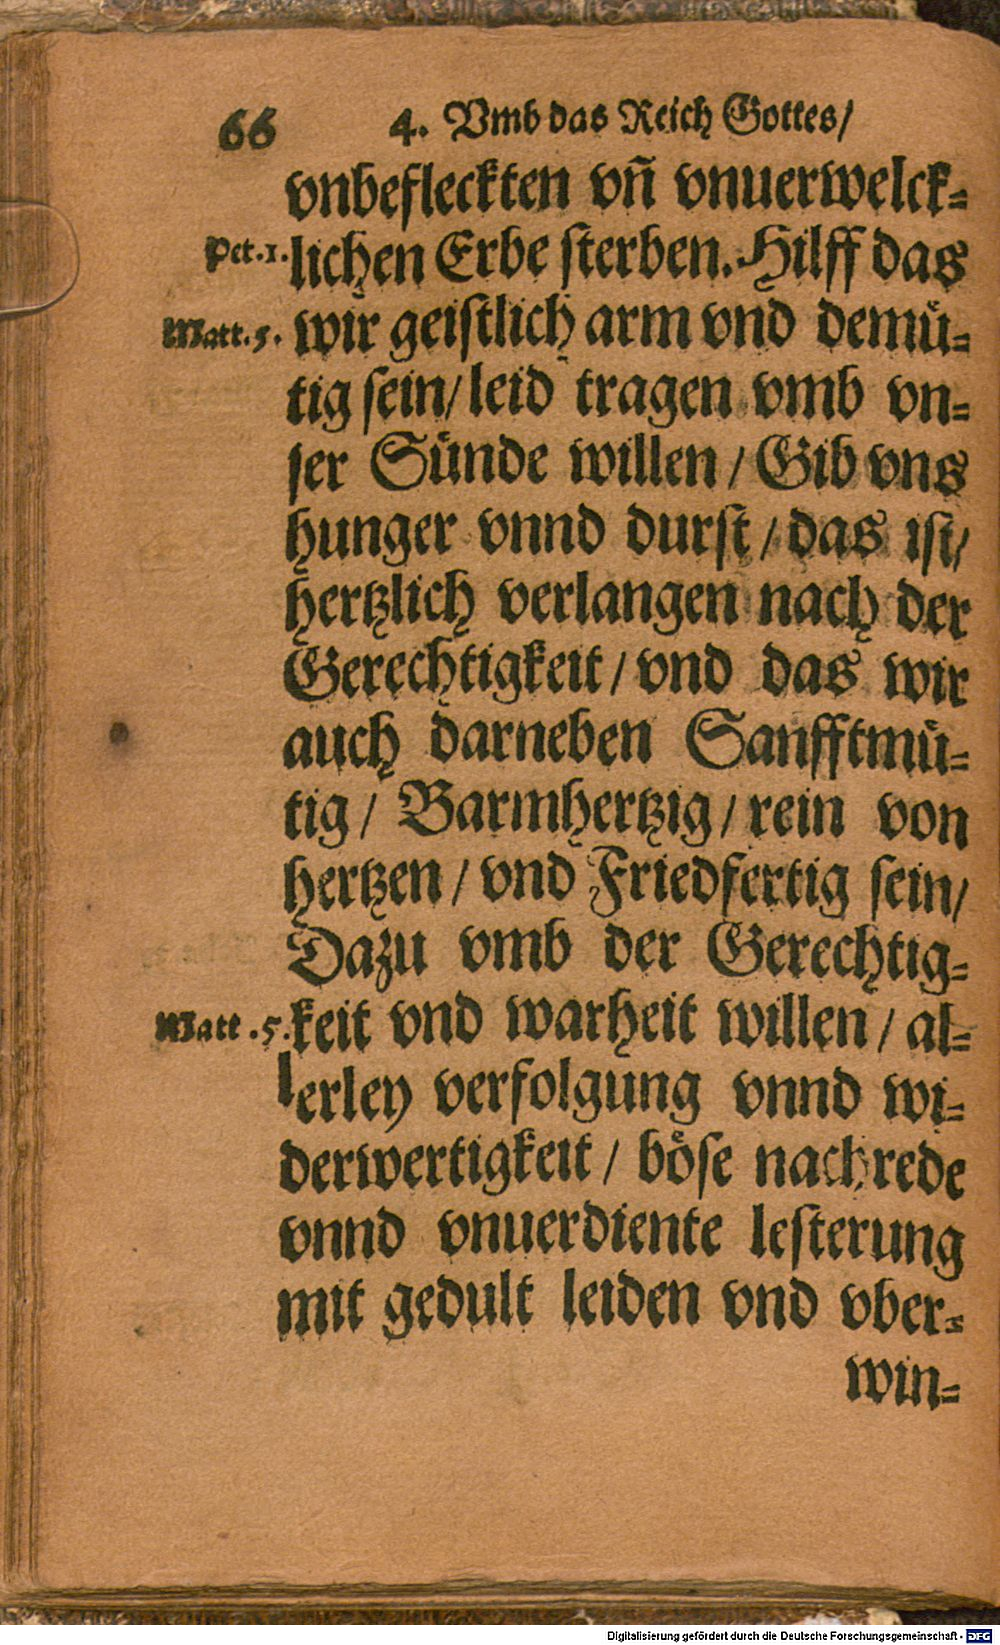 66 4. Vmb das Reich Gottes/
vnbefleckten vñ vnuerwelck-
Pet.1. lichen Erbe sterben. Hilff das
Matt.5. wir geistlich arm vnd demuͤ-
tig sein/ leid tragen vmb vn-
ser Suͤnde willen/ Gib vns
hunger vnnd durst/ das ist/
hertzlich verlangen nach der
Gerechtigkeit/ vnd das wir
auch darneben Sanfftmuͤ-
tig/ Barmhertzig/ rein von
hertzen/ vnd Friedfertig sein/
Dazu vmb der Gerechtig-
Matt.5. keit vnd warheit willen/ al-
lerley verfolgung vnnd wi-
derwertigkeit/ boͤse nachrede
vnnd vnuerdiente lesterung
mit gedult leiden vnd vber-
win-
Digitalisierung gefördert durch die Deutsche Forschungsgemeinschaft - DFG